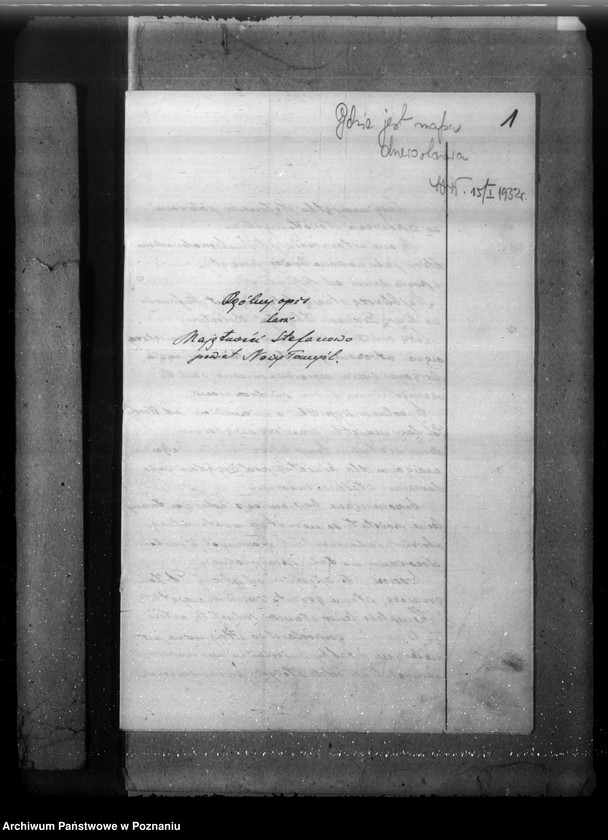 Gdzie jest mapa
drzewostanów
15/I 1932r.
1
Ogólny opis
lasu
Majętności Stefanowo
powiat Nowy Tomyśl.
Archiwum Państwowe w Poznaniu